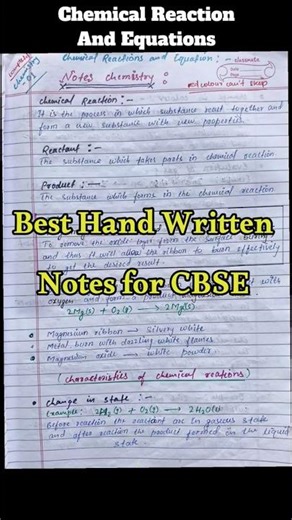 Chemical Reaction
And Equations
Chemical Reactions and Equation :-
Notes chemistry :
Chemical Reaction :-
It is the process in which substance react together and
form a new substance with new properties
Reactant :-
The substance which takes parts in chemical reaction
Product :-
The substance which forms in the chemical reaction
Best Hand Written
To remove the oxide layer from the surface
and thus it will allow the ribbon to burn effectively
to get the desired result.
Notes for CBSE
with
oxygen and form a
2Mg(s) + O₂(g) → 2Mg
Magnesium ribbon → Silvery white
Metal burn with dazzling white flames
Magnesium oxide → white powder
(characteristics of chemical reactions)
Change in state :-
Example: 2H₂(g) + O₂(g) → 2H₂O(l)
Before reaction the reactant are in gaseous state
and after reaction the product formed on the liquid
state.